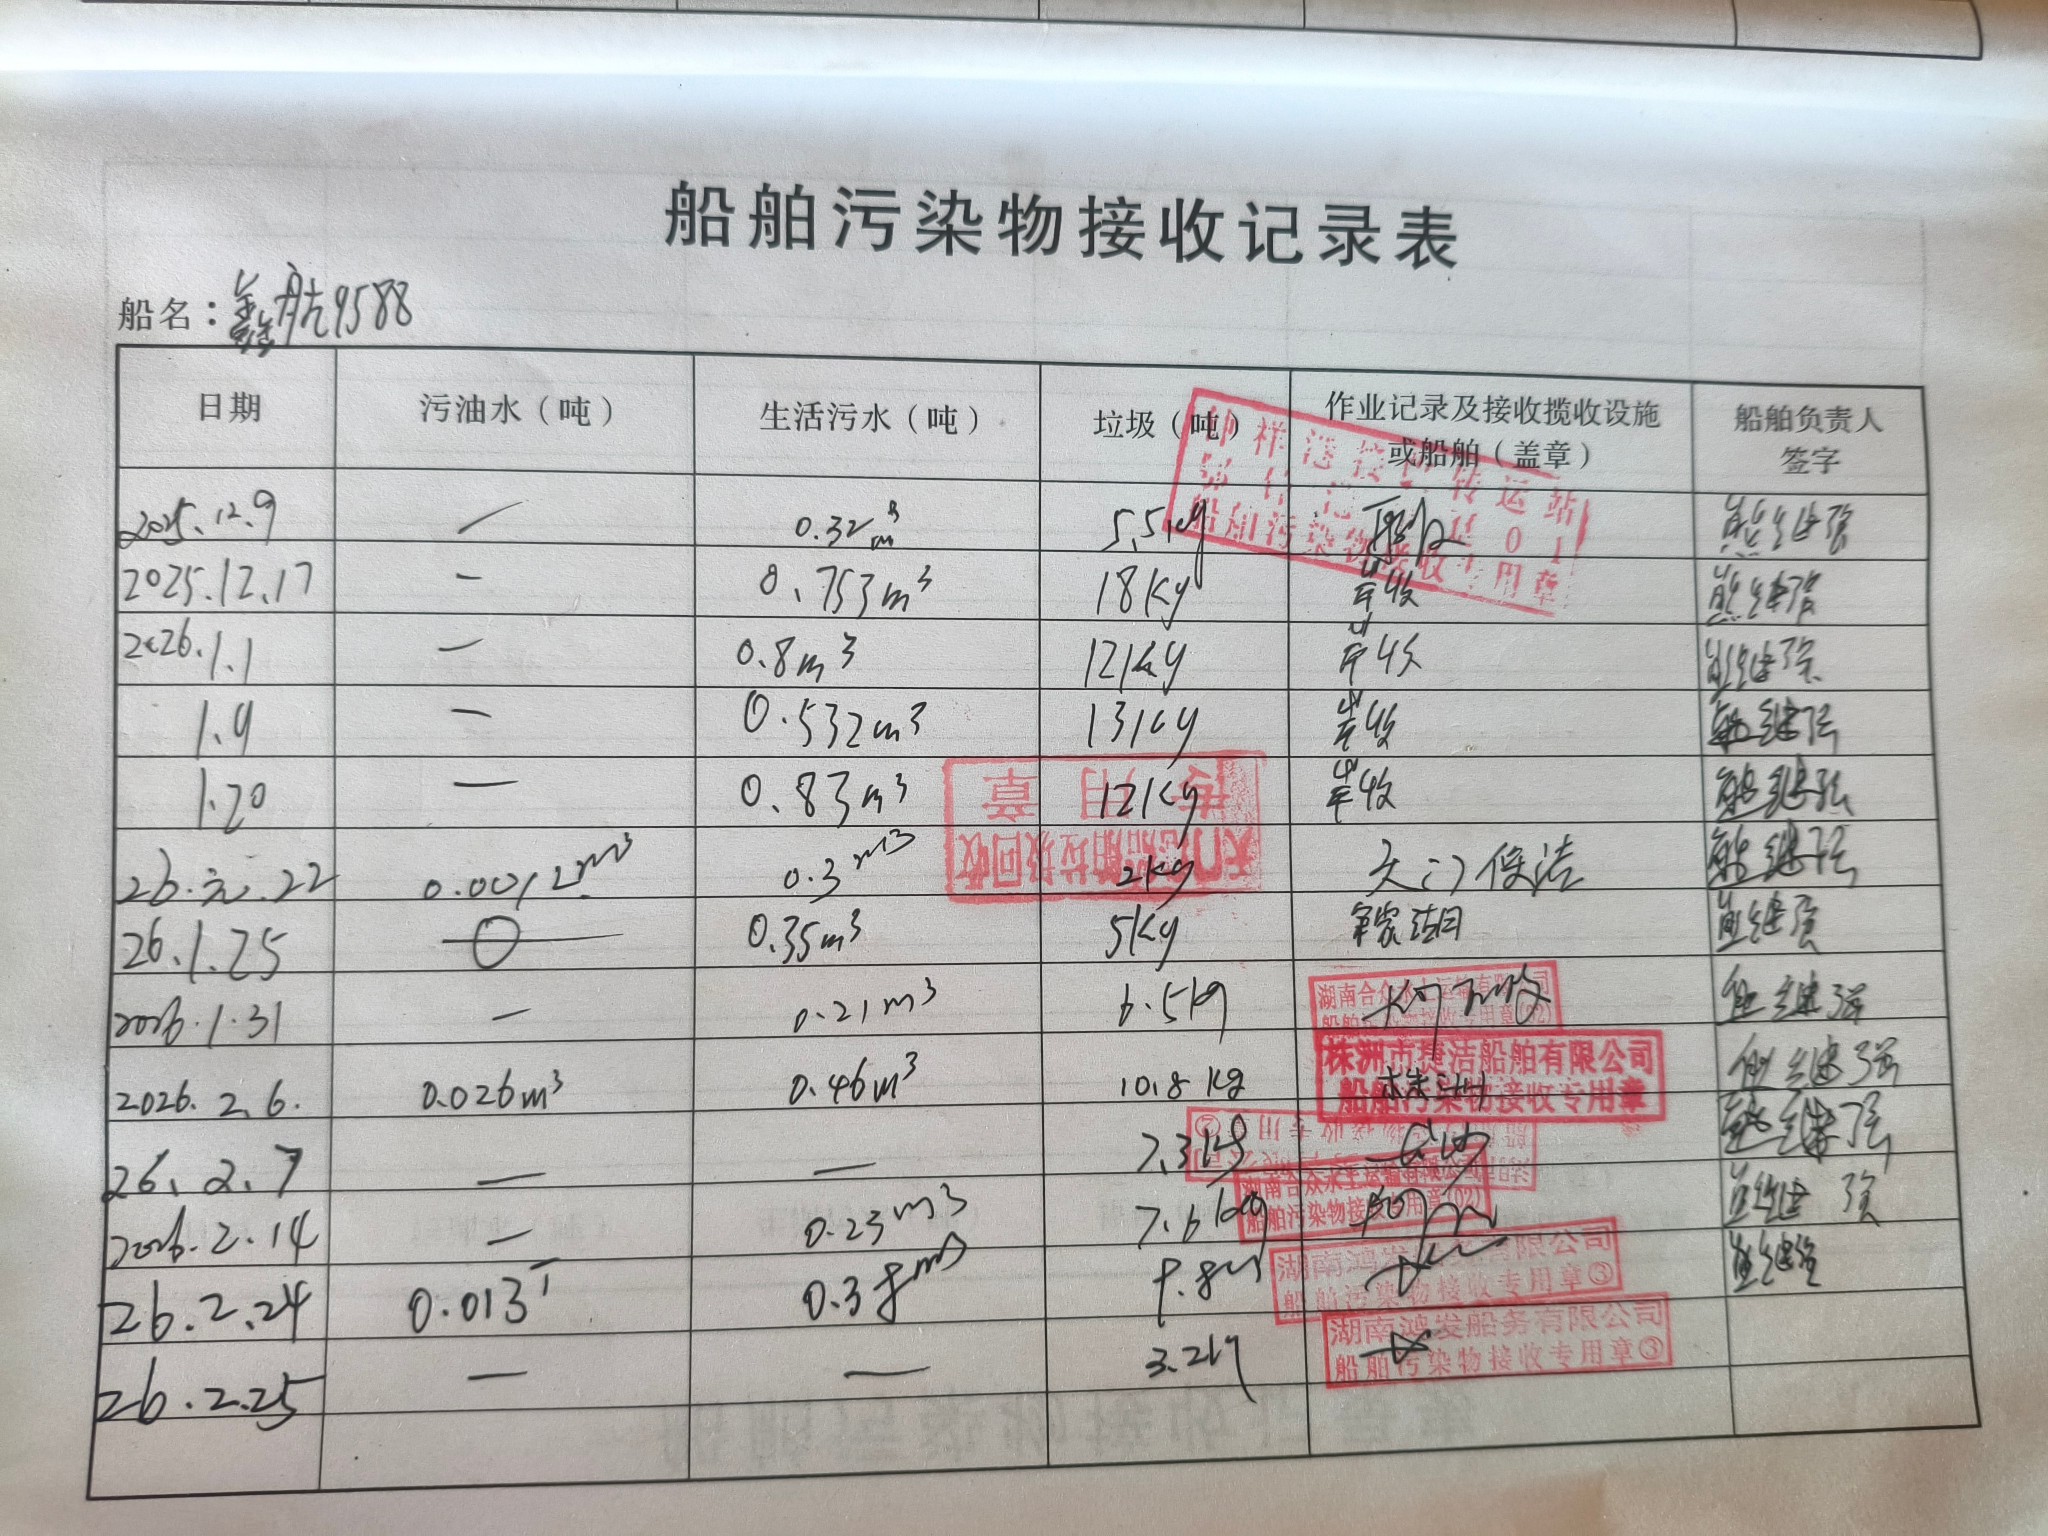 船舶污染物接收记录表
船名：鑫航9588
日期 污油水（吨） 生活污水（吨） 垃圾（吨） 作业记录及接收揽收设施或船舶（盖章） 船舶负责人签字
2025.12.9 — 0.32m³ 5.5kg 熊继强
2025.12.17 — 0.753m³ 18Kg 岸收 熊继强
2026.1.1 — 0.8m³ 12Kg 岸收 熊继强
1.9 — 0.532m³ 13Kg 岸收 熊继强
1.20 — 0.83m³ 12Kg 岸收 熊继强
26.元.22 0.0012m³ 0.3m³ 2Kg 天门保洁 熊继强
26.1.25 0 0.35m³ 5Kg 熊继强
2026.1.31 — 0.21m³ 6.5kg 熊继强
湖南合众水上运输有限公司
船舶污染物接收专用章(02)
2026.2.6. 0.026m³ 0.46m³ 10.8kg 株洲 熊继强
株洲市捷洁船舶有限公司
船舶污染物接收专用章
26.2.7 — — 7.3kg 熊继强
2026.2.14 — 0.23m³ 7.6kg 熊继强
湖南合众水上运输有限公司
船舶污染物接收专用章(02)
26.2.24 0.013T 0.38m³ 9.8kg 熊继强
湖南鸿发船务有限公司
船舶污染物接收专用章③
26.2.25 — — 3.2kg
湖南鸿发船务有限公司
船舶污染物接收专用章③